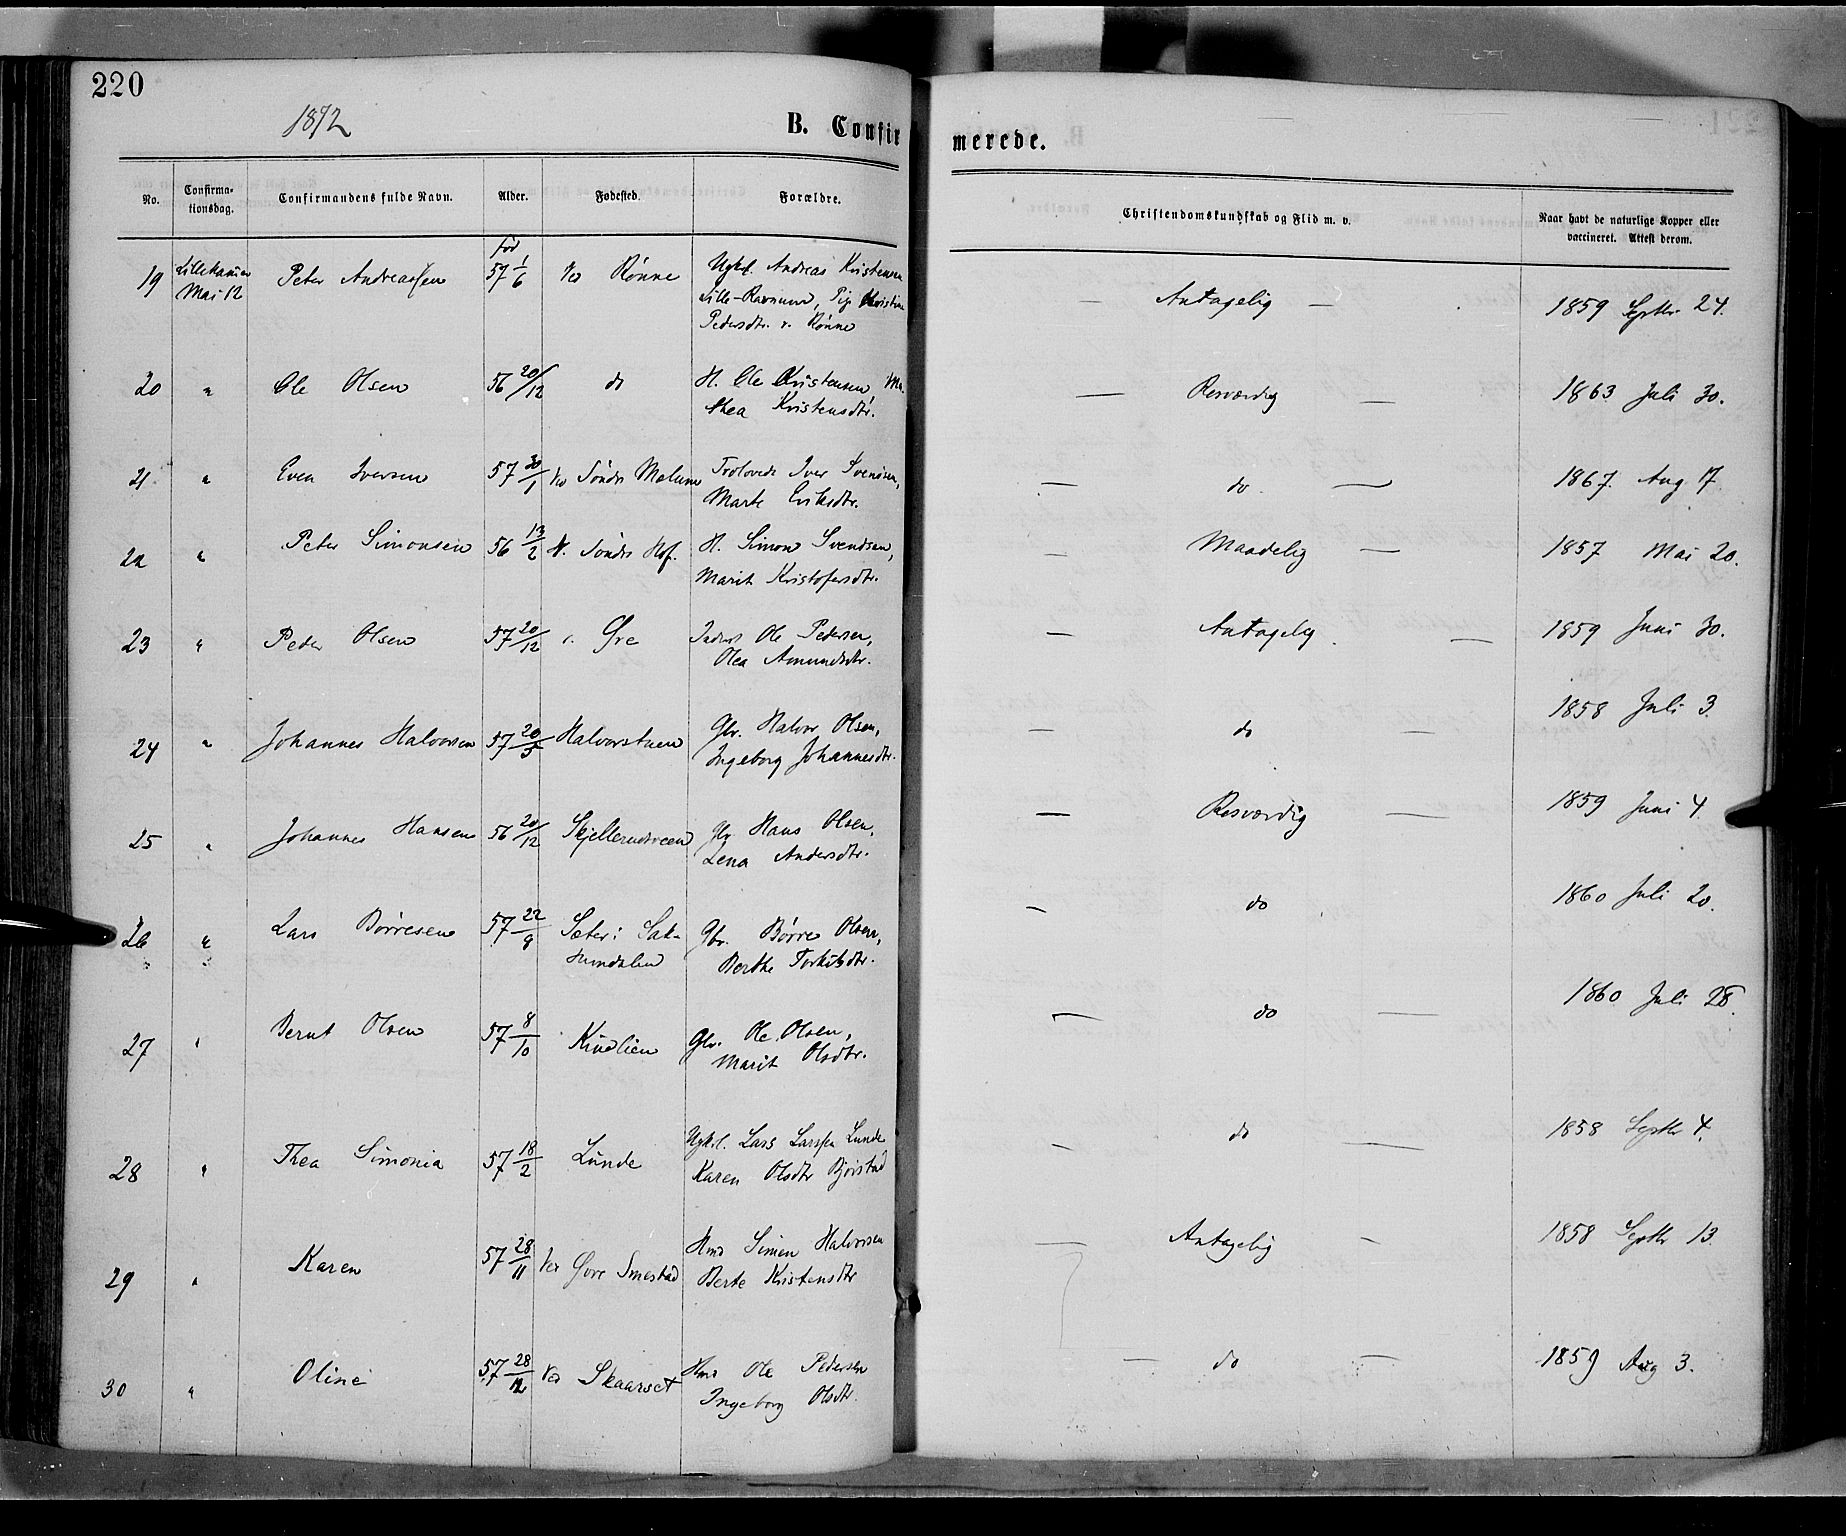 220
1872
B. Confirmerede.
No. Confirmationsdag. Confirmandens fulde Navn. Alder. Fødested. Forældre. Christendomskundskab og Flid m. v. Naar havt de naturlige Kopper eller vaccineret. Attest derom.
19 Lillehamer Mai 12 Peter Andreassen fød 57 1/6 Rønne Andreas Kristensen Antagelig — 1859 Septbr 24.
Pedersdtr. v. Rønne
20 " Ole Olsen 56 20/12 do H. Ole Kristensen, Ma- — Rosværdig — 1863 Juli 30.
thea Kristensdtr.
21 " Even Iversen 57 30/1 Søndr Mælum Iver Svendsen, — do — 1867. Aug 17.
Marte Eriksdtr.
22 " Peter Simonsen 56 13/2 Søndr Hof. H. Simon Svendsen, — Maadelig — 1857 Mai 20.
Marit Kristofersdtr.
23 " Peter Olsen 57 20/12 Øre Inderst Ole Pedersen, — Antagelig. — 1859 Juni 30.
Olea Amundsdtr.
24 " Johannes Halvorsen 57 20/5 Halvorstuen Gbr. Halvor Olsen, — do — 1858 Juli 3.
Ingeborg Johannesdtr.
25 " Johannes Hansen 56 20/12 Gbr Hans Olsen, — Rosværdig — 1859 Juni 4.
Lena Andersdtr.
26 " Lars Børresen 57 22/9 Sæter i Sak- Gbr. Børre Olsen, — do 1860 Juli 20.
sumdalen Berthe Torkilsdtr.
27 " Bernt Olsen 57 8/10 Kindlien Gbr. Ole Olsen, — do — 1860 Juli 28.
Marit Olsdtr.
28 " Thea Simonia 57 18/2 Lunde Ugkrl. Lars Larssen Lunde — do — 1858 Septbr 4.
Karen Olsdtr Bjørstad
29 " Karen 57 28/11 Smestad Hmd Simen Halvorsen — Antagelig — 1858 Septbr 13.
Berte Kristensdtr
30 " Oline 57 28/12 Ved Skaarset Hmd Ole Pedersen — do — 1859 Aug 3.
Ingeborg Olsdtr.